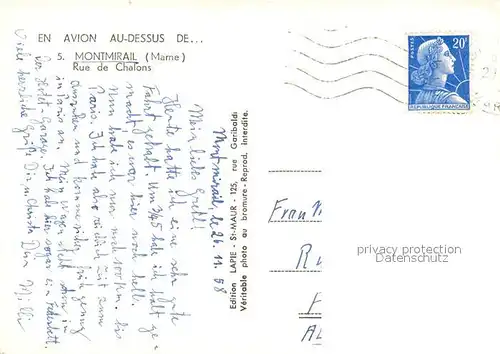 EN AVION AU-DESSUS DE...
5. MONTMIRAIL (Marne)
Rue de Chalons
POSTES
20F
REPUBLIQUE FRANÇAISE
Edition LAPIE - St-MAUR - 125, rue Garibaldi
Véritable photo au bromure - Reprod. interdite.
Montmirail, de 26. 11. 58
Mein liebes Gretl!
Heute hatte ich eine sehr gute
Fahrt gehabt. Um 3/45 habe ich halt ge-
macht es war hier noch hell.
Nun habe ich nur noch 100 km bis
Paris. Ich habe also reichlich Zeit zum
und komme früh genug
in Paris an. Mein Wagen steht hier in
der Hotel-Garage. Ich habe hier sogar ein Federbett.
Viele herzliche Grüße Dir u. Christa Dein Willi
Frau
privacy protection
Datenschutz